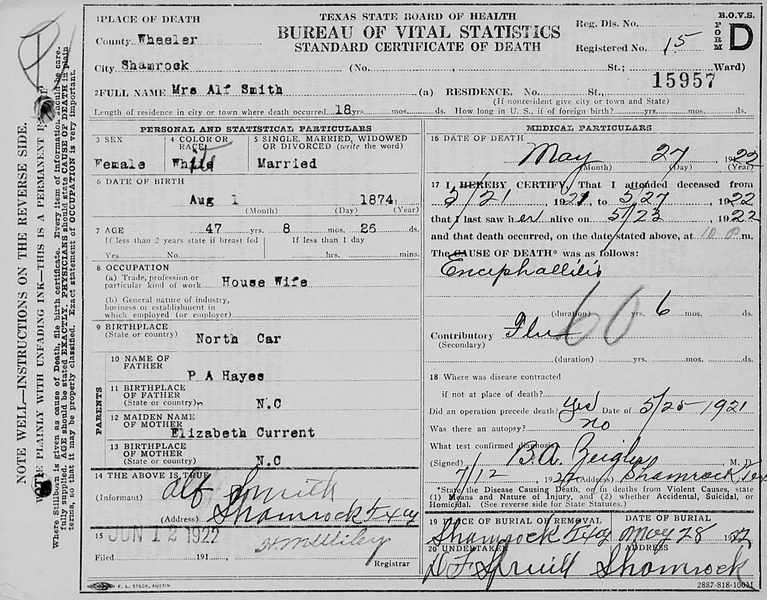 1 PLACE OF DEATH
County Wheeler
City Shamrock
TEXAS STATE BOARD OF HEALTH
BUREAU OF VITAL STATISTICS
STANDARD CERTIFICATE OF DEATH
Reg. Dis. No.
Registered No. 15
B.O.V.S.
FORM D
(No. St.; Ward)
15957
2 FULL NAME Mrs Alf Smith (a) RESIDENCE. No. St.
(If nonresident give city or town and State)
Length of residence in city or town where death occurred 18 yrs. mos. ds. How long in U. S., if of foreign birth? yrs. mos. ds.
PERSONAL AND STATISTICAL PARTICULARS
3 SEX
Female
4 COLOR OR RACE
White
5 SINGLE, MARRIED, WIDOWED OR DIVORCED (write the word)
Married
6 DATE OF BIRTH
Aug 1 1874
(Month) (Day) (Year)
7 AGE 47 yrs. 8 mos. 26 ds.
If less than 2 years state if breast fed If less than 1 day
Yes No hrs. mins.
8 OCCUPATION
(a) Trade, profession or
particular kind of work House Wife
(b) General nature of industry,
business or establishment in
which employed (or employer)
9 BIRTHPLACE
(State or country) North Car
PARENTS
10 NAME OF
FATHER
P A Hayes
11 BIRTHPLACE
OF FATHER
(State or country) N.C
12 MAIDEN NAME
OF MOTHER
Elizabeth Current
13 BIRTHPLACE
OF MOTHER
(State or country) N.C
14 THE ABOVE IS TRUE
(Informant) Alf Smith
(Address) Shamrock Texas
15 JUN 12 1922
Filed 191
Registrar
MEDICAL PARTICULARS
16 DATE OF DEATH
May 27 1922
(Month) (Day) (Year)
17 I HEREBY CERTIFY, That I attended deceased from
5/21 1921, to 5/27, 1922
that I last saw her alive on 5/23, 1922
and that death occurred, on the date stated above, at 10 P m.
The CAUSE OF DEATH* was as follows:
Encephallitis
(duration) yrs. 6 mos. ds.
60
Contributory Flu
(Secondary)
(duration) yrs. mos. ds.
18 Where was disease contracted
if not at place of death?
Did an operation precede death? Yes Date of 5/25-1921
Was there an autopsy? no
What test confirmed diagnosis
(Signed) B.A. Zeigler M. D.
7/12 1922 (Address) Shamrock Tex
*State the Disease Causing Death, or in deaths from Violent Causes, state
(1) Means and Nature of Injury, and (2) whether Accidental, Suicidal, or
Homicidal. (See reverse side for State Statutes.)
19 PLACE OF BURIAL OR REMOVAL
Shamrock Texas
DATE OF BURIAL
May 28 1922
20 UNDERTAKER
D F Spruill
ADDRESS
Shamrock
2887-818-100M
F. L. STECK, AUSTIN
NOTE WELL—INSTRUCTIONS ON THE REVERSE SIDE.
WRITE PLAINLY WITH UNFADING INK—THIS IS A PERMANENT
Where Stillborn is given as cause of Death, file birth certificate. Every item of information should be care-
fully supplied. AGE should be stated EXACTLY. PHYSICIANS should state CAUSE OF DEATH in plain
terms, so that it may be properly classified. Exact statement of OCCUPATION is very important.